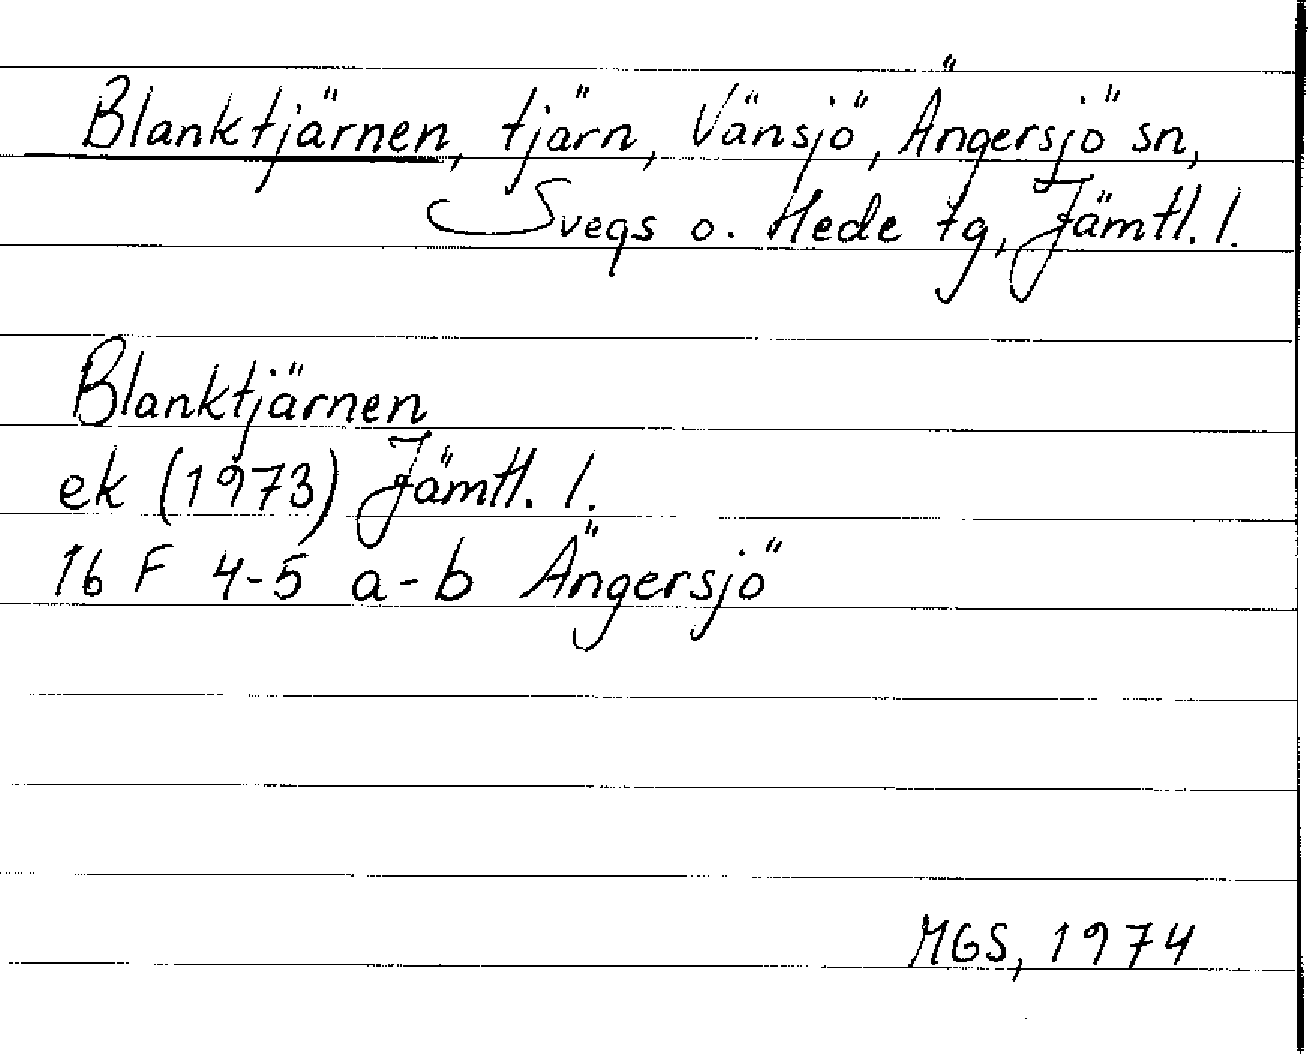 Blanktjärnen, tjärn, Vänsjö, Ängersjö sn,
Svegs o. Hede tg, Jämtl. l.
Blanktjärnen
ek (1973) Jämtl. l.
16 F 4-5 a-b Ängersjö
MGS, 1974